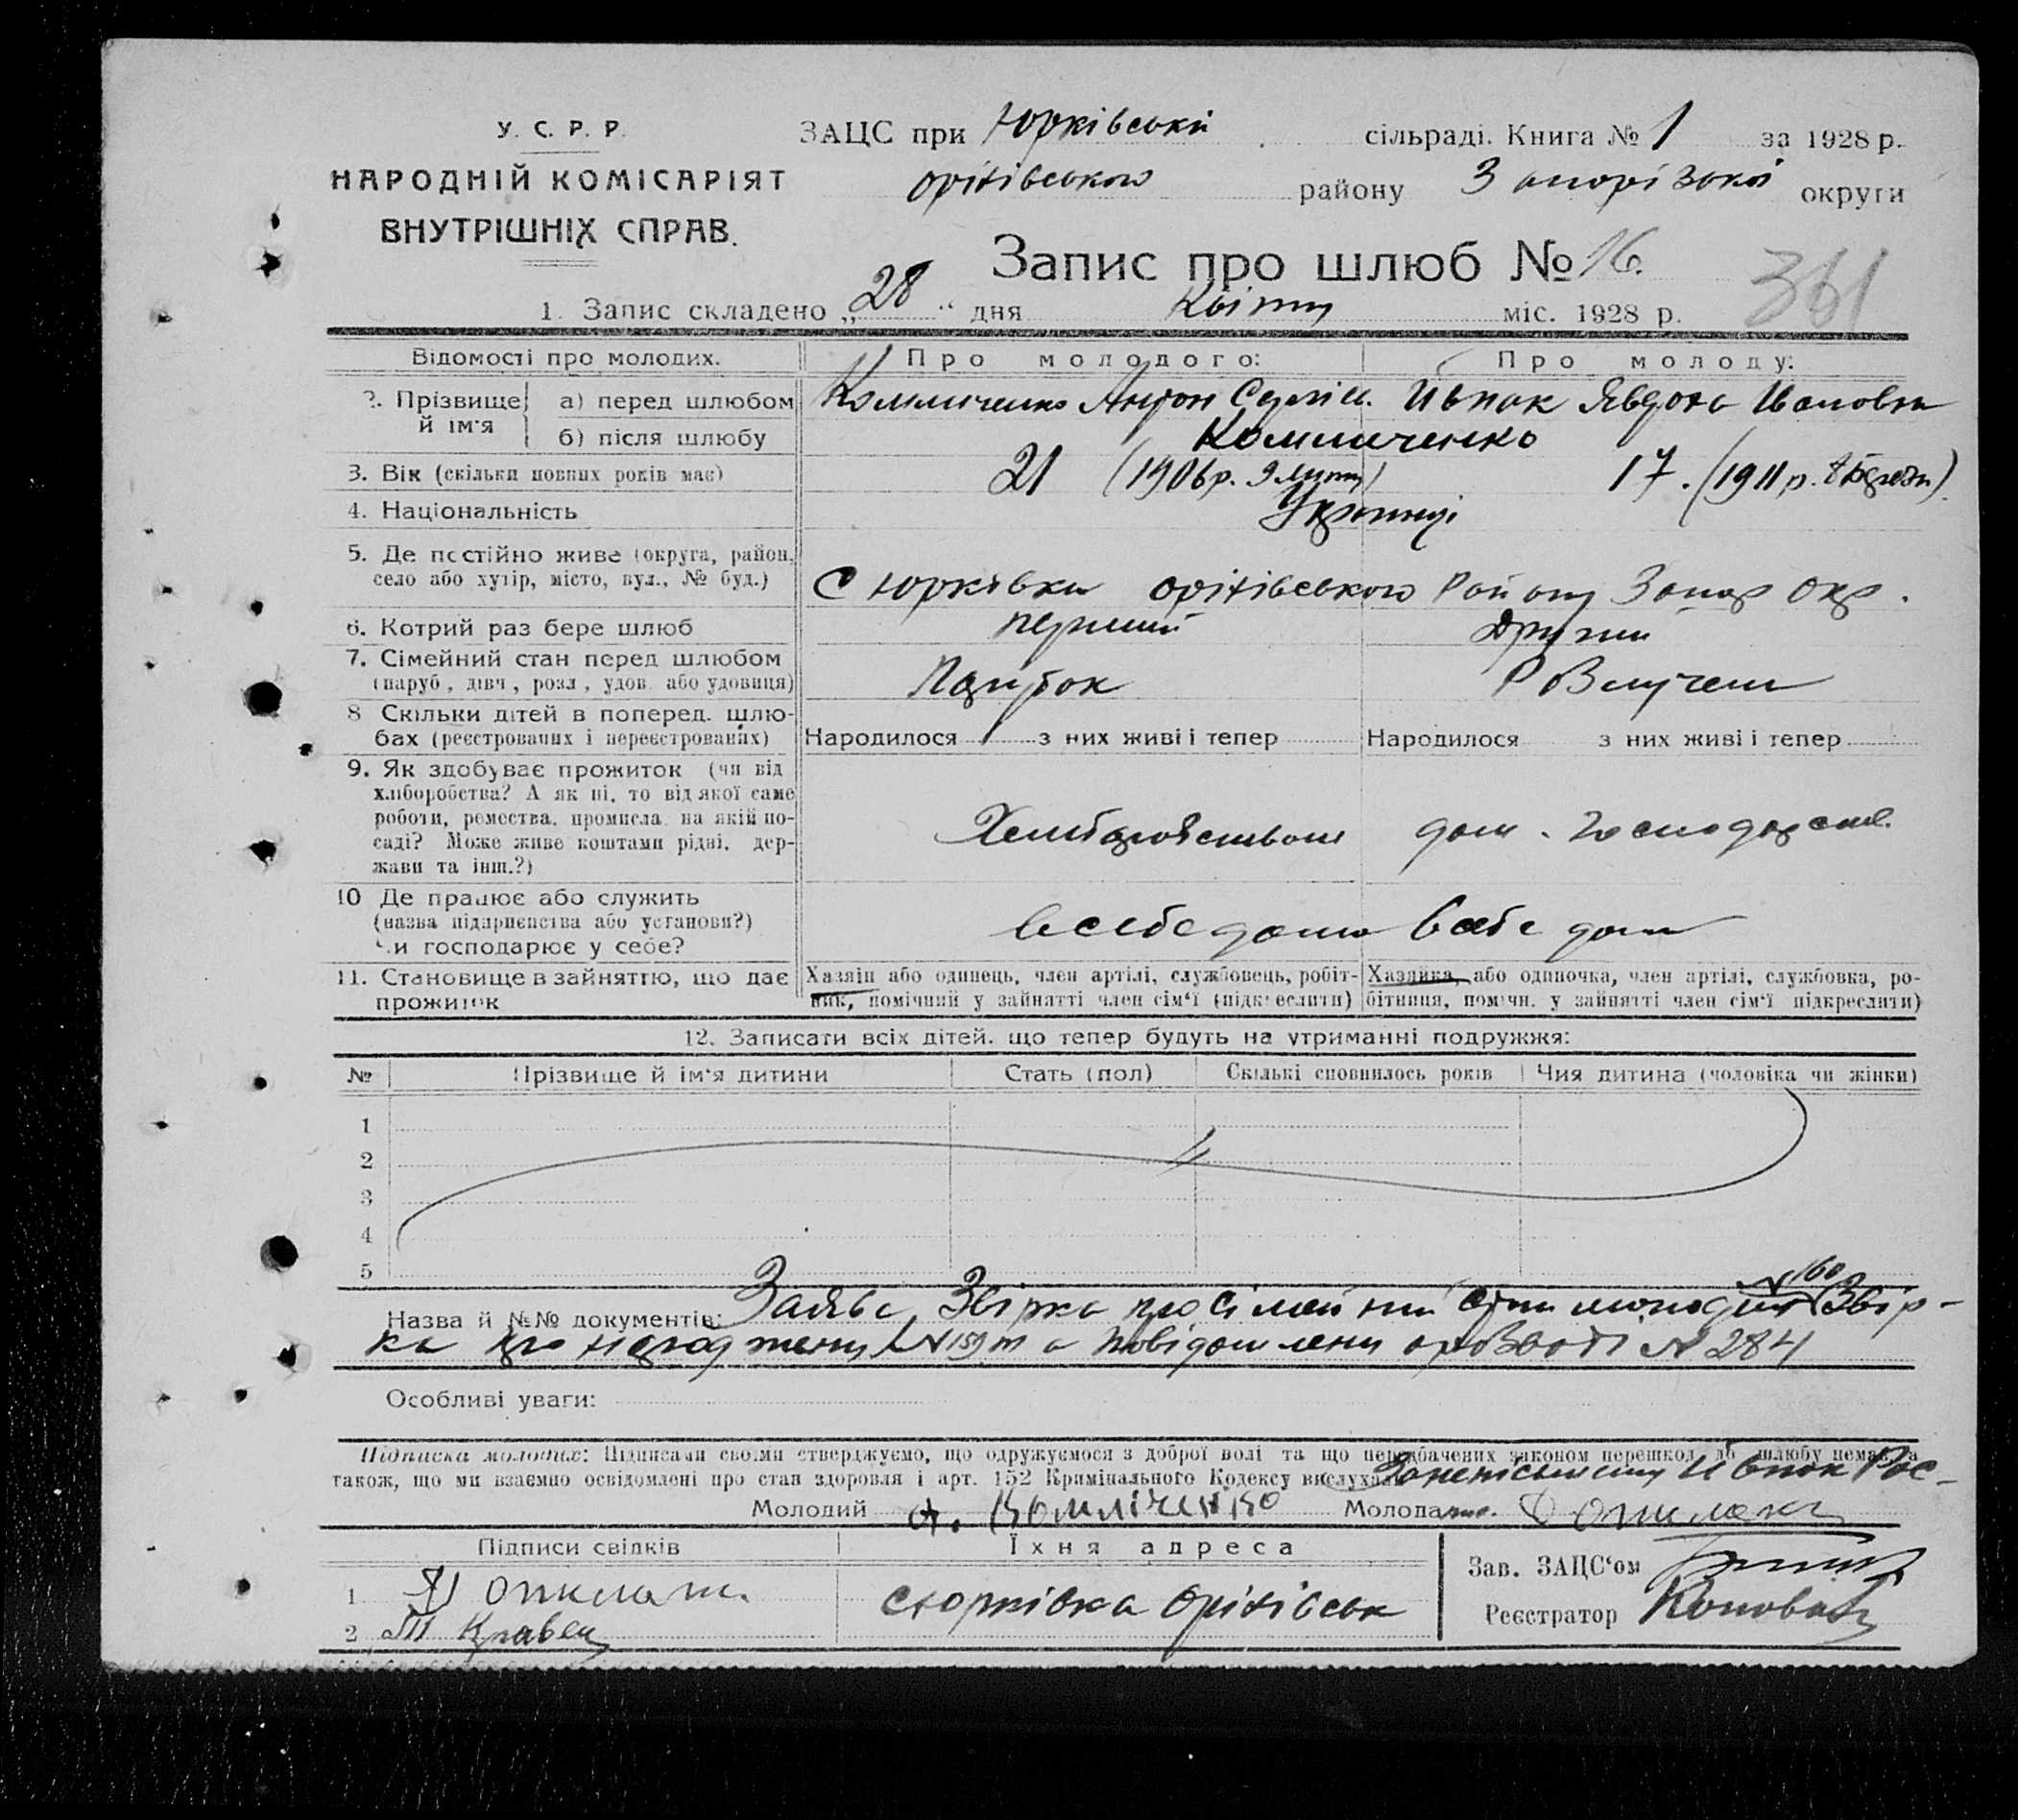 У. С. Р. Р.
НАРОДНІЙ КОМІСАРІЯТ
ВНУТРІШНІХ СПРАВ.
ЗАЦС при Юрківські сільраді. Книга № 1 за 1928 р.
оріхівського району Запорізької округи
Запис про шлюб № 16.
361
1. Запис складено „28“ дня Квітня міс. 1928 р.
Відомості про молодих. Про молодого: Про молоду:
2. Прізвище й ім'я а) перед шлюбом Комличенко Антон Івпак Явдоха Івановна
б) після шлюбу Комличенко
3. Вік (скільки повних років має) 21 (1906 р. 9 17. (1911 р. 8 березн)
4. Національність Українці
5. Де постійно живе (округа, район, село або хутір, місто, вул., № буд.) С Юрківка оріхівського Району Запор Окр.
6. Котрий раз бере шлюб перший Другий
7. Сімейний стан перед шлюбом (паруб., дівч., розл., удов. або удовиця) Парубок
8 Скільки дітей в поперед. шлюбах (реєстрованих і нереєстрованих) Народилося з них живі і тепер Народилося з них живі і тепер
9. Як здобуває прожиток (чи від
хліборобства? А як ні, то від якої саме
роботи, ремества, промисла, на якій по-
саді? Може живе коштами рідні, дер-
жави та інш.?) дом. господарств.
10 Де працює або служить
(назва підприєнства або установи?)
Чи господарює у себе? в себе дома в себе дома
11. Становище в зайняттю, що дає прожиток
Хазяїн або одинець, член артілі, службовець, робіт-
ник, помічний у зайнятті член сім'ї (підкреслити)
Хазяйка, або одиночка, член артілі, службовка, ро-
бітниця, помічн. у зайнятті член сім'ї підкреслити)
12. Записати всіх дітей, що тепер будуть на утриманні подружжя:
№ Прізвище й ім'я дитини Стать (пол) Скількі сповнилось років Чия дитина (чоловіка чи жінки)
1
2
3
4
5
Назва й №№ документів: Заява Звірка про сімейний стан молодих N 160 Звір-
ка про народження N 159 та Повідомлення про Звоті N 284
Особливі уваги:
Підписка молодих: Підписами своїми стверджуємо, що одружуємося з доброї волі та що передбачених законом перешкод до шлюбу немає, а
також, що ми взаємно освідомлені про стан здоровля і арт. 152 Кримінального Кодексу вислухали Івпак Рос-
Молодий А. Комліченко Молода
Підписи свідків Їхня адреса
1
2 Т Кравец
с Юрківка Оріхівськ
Зав. ЗАЦС'ом
Реєстратор